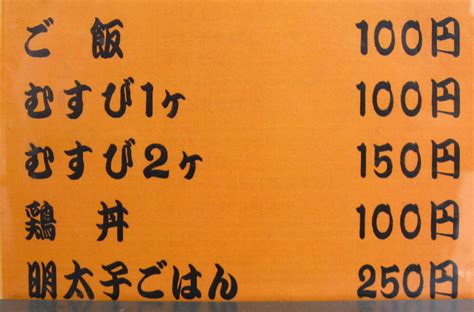 ご飯 100円
むすび1ヶ 100円
むすび2ヶ 150円
鶏丼 100円
明太子ごはん 250円